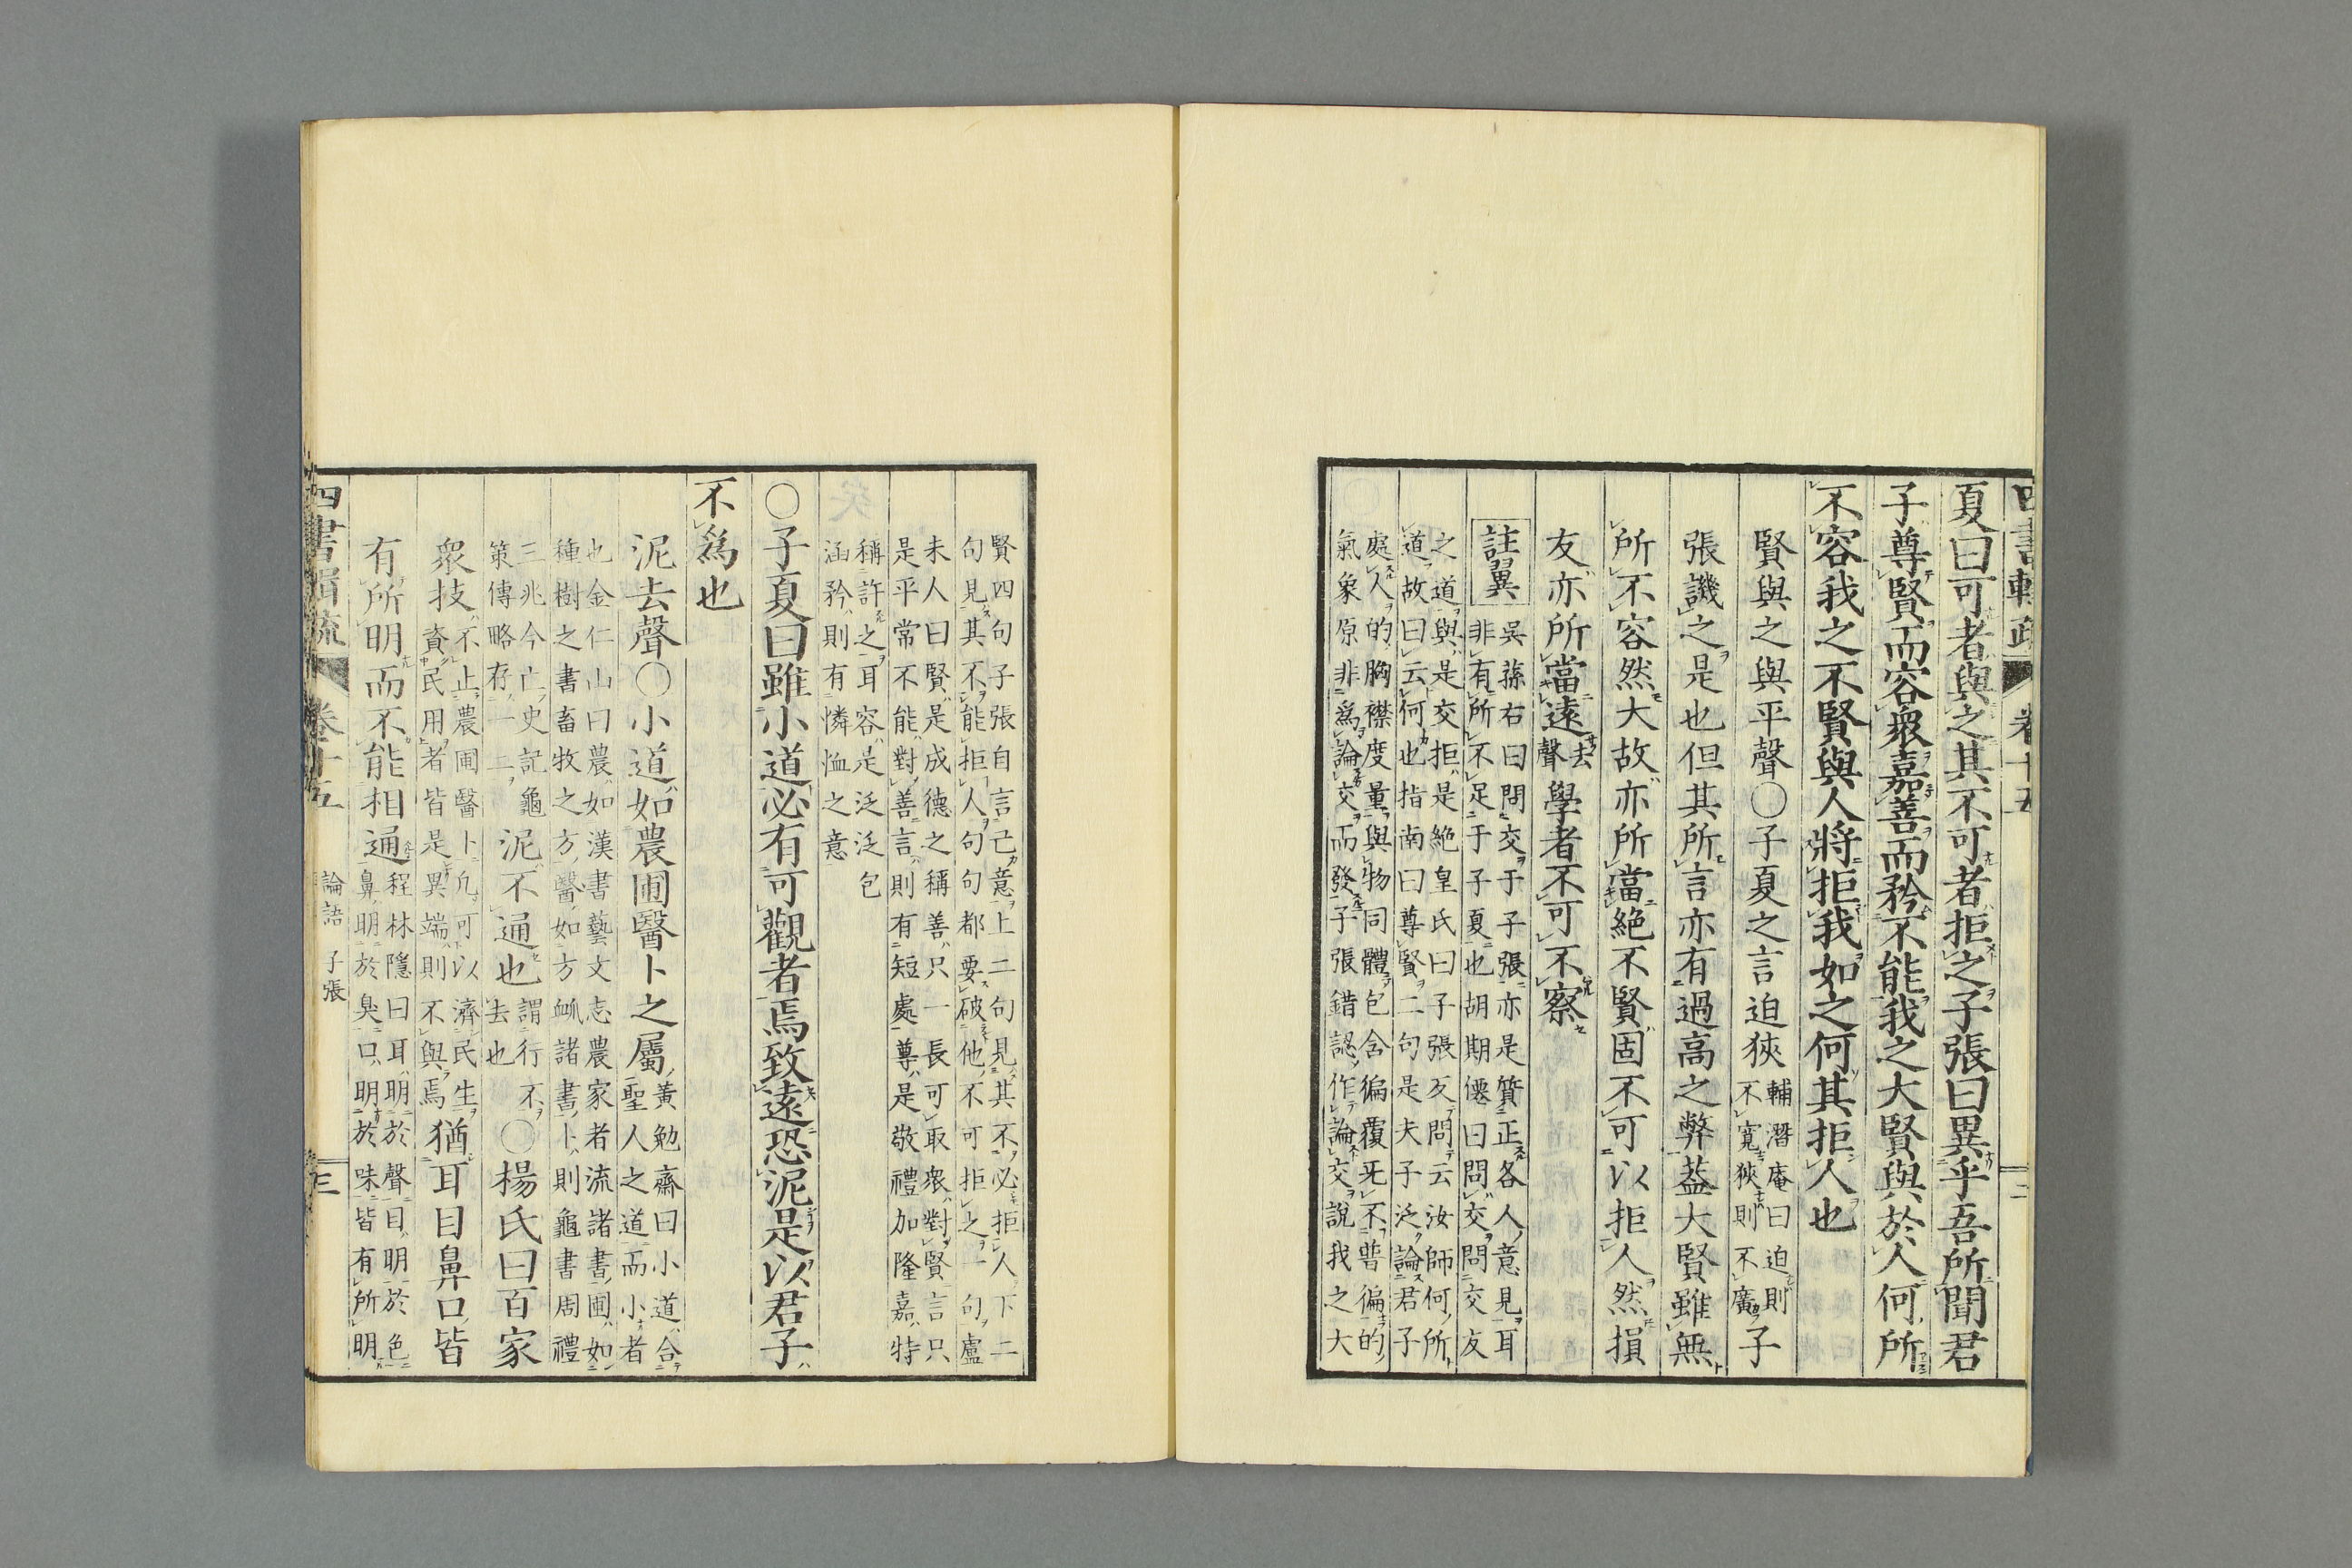 夏曰可者與之其不可者拒之子張曰異乎吾所聞君
子尊賢而容衆嘉善而矜不能我之大賢與於人何所
不容我之不賢與人將拒我如之何其拒人也
賢與之與平聲〇子夏之言迫狹輔潛庵曰迫則不寬狹則不廣子
張譏之是也但其所言亦有過高之弊蓋大賢雖無
所不容然大故亦所當絕不賢固不可以拒人然損
友亦所當遠去聲學者不可不察
註翼 吳蓀右曰問交于子張亦是質正各人意見耳
非有所不足于子夏也胡期僊曰問交問交友
之道與是交拒是絕皇氏曰子張反問云汝師何所
道故曰云何也指南曰尊賢二句是夫子泛論君子
處人的胸襟度量與物同體包含徧覆旡不普徧的
氣象原非為論交而發子張錯認作論交說我之大
賢四句子張自言己意上二句見其不必拒人下二
句見其不能拒人句句都要破他不可拒之一句盧
未人曰賢是成德之稱善只一長可取衆對賢言只
是平常不能對善言則有短處尊是敬禮加隆嘉特
稱許之耳容是泛泛包
涵矜則有憐恤之意
〇子夏曰雖小道必有可觀者焉致遠恐泥是以君子
不爲也
泥去聲〇小道如農圃醫卜之屬黃勉齋曰小道合聖人之道而小者
也金仁山曰農如漢書藝文志農家者流諸書圃如
種樹之書畜牧之方醫如方衇諸書卜則龜書周禮
三兆今亡史記龜策傳略存一二泥不通也謂行不去也〇楊氏曰百家
衆技不止農圃醫卜凡可以濟民生資民用者皆是異端則不與焉猶耳目鼻口皆
有所明而不能相通程林隱曰耳明於聲目明於色鼻明於臭口明於味皆有所明
四書輯疏 卷十五 論語 子張 三